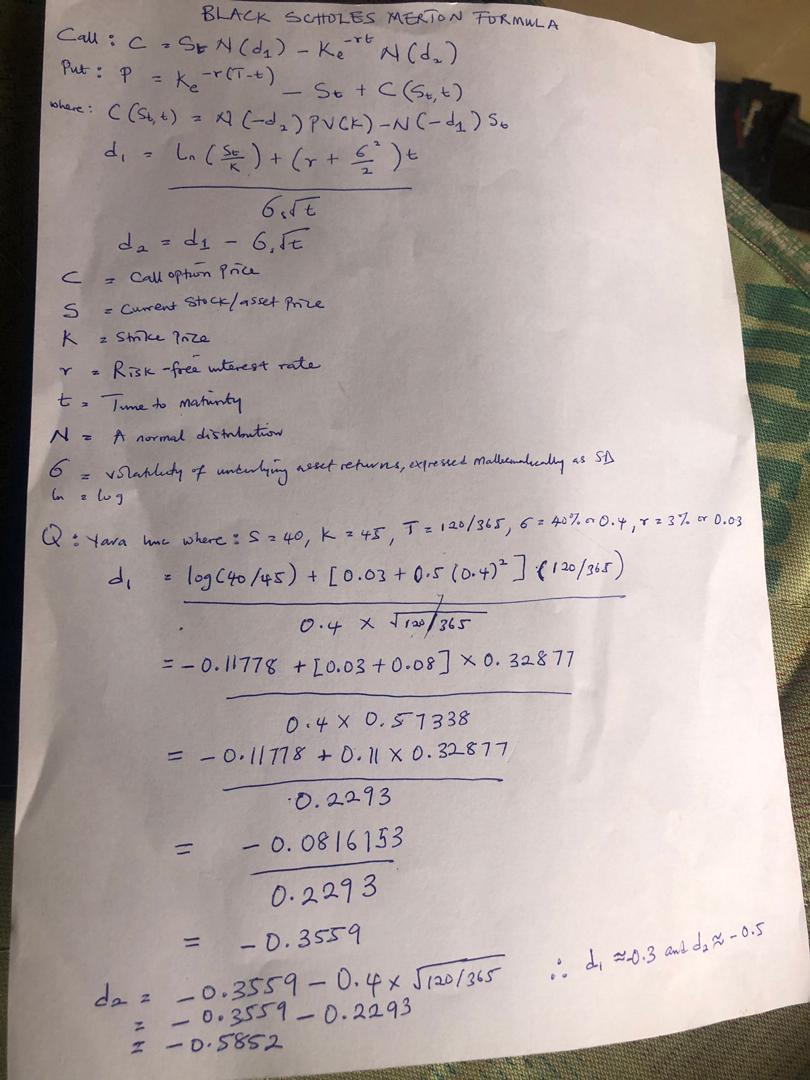 BLACK SCHOLES MERTON FORMULA
Call : C = St N(d1) - Ke^-rt N(d2)
Put : P = Ke^-r(T-t) - St + C(St,t)
where : C(St,t) = N(-d2) PV(K) - N(-d1) St
d1 = Ln (St/K) + (r + σ²/2) t
σ.√t
d2 = d1 - σ.√t
C = Call option Price
S = Current Stock/asset Price
K = Strike Price
r = Risk-free interest rate
t = Time to maturity
N = A normal distribution
σ = volatility of underlying asset returns, expressed mathematically as SD
ln = log
Q : Yara Inc where : S = 40, K = 45, T = 120/365, σ = 40% or 0.4, r = 3% or 0.03
d1 = log(40/45) + [0.03 + 0.5 (0.4)²] · (120/365)
0.4 × √120/365
= -0.11778 + [0.03 + 0.08] × 0.32877
0.4 × 0.57338
= -0.11778 + 0.11 × 0.32877
0.2293
= -0.0816153
0.2293
= -0.3559
d2 = -0.3559 - 0.4 × √120/365
∴ d1 ≈ -0.3 and d2 ≈ -0.5
= -0.3559 - 0.2293
= -0.5852